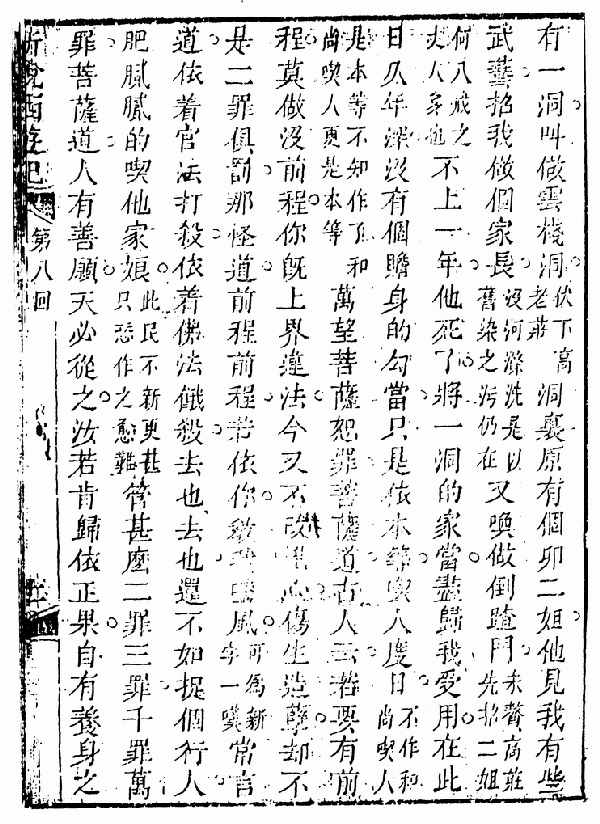 有一洞叫做雲棧洞伏下高老莊洞裏原有個卯二姐他見我有些
武藝招我做個家長沒河滌洗是以舊染之污仍在又喚做倒蹅門未贅高莊先招二姐
何八戒之丈人多也不上一年他死了將一洞的家當盡歸我受用在此
日久年深沒有個贍身的勾當只是依本等喫人度日不作和尚喫人
是本等不知作了和尚喫人更是本等萬望菩薩恕罪菩薩道古人云若要有前
程莫做沒前程你既上界違法今又不改心傷生造孽却不
是二罪俱罰那怪道前程前程若依你風可為新字一噱常言
道依着官法打殺依着佛法餓殺去也去也還不如捉個行人
肥膩膩的喫他家娘此民不新更甚只恐作之愈難管甚麼二罪三罪千罪萬
罪菩薩道人有善願天必從之汝若肯歸依正果自有養身之
西遊記
第八回